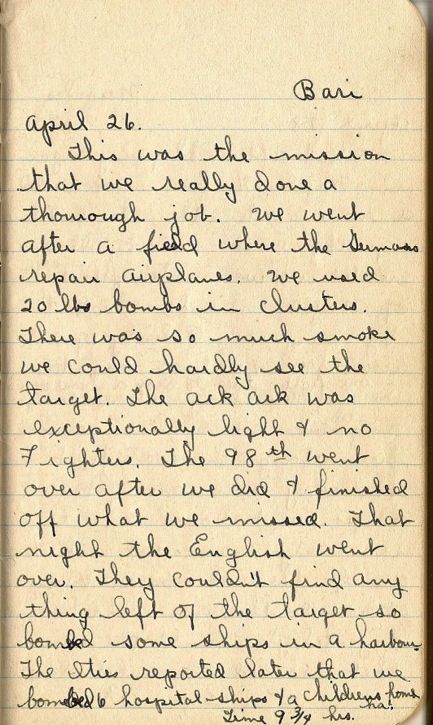 Bari
April 26.
This was the mission
that we really done a
thorough job. We went
after a field where the Germans
repair airplanes. We used
20 lbs bombs in clusters.
There was so much smoke
we could hardly see the
target. The ack ack was
exceptionally light & no
Fighters. The 98th went
over after we did & finished
off what we missed. That
night the English went
over. They couldn't find any
thing left of the target so
bombed some ships in a harbour.
The Ities reported later that we
bombed 6 hospital ships & a childrens home
ha!
Time 9 3/4 hrs.